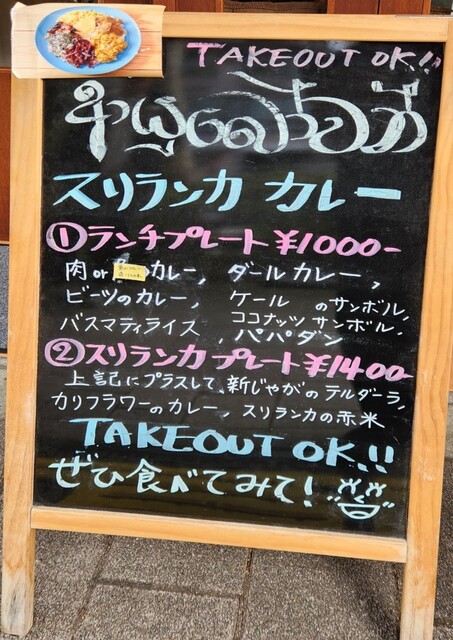 TAKEOUT OK!!
ආයුබෝවන්
スリランカ カレー
①ランチプレート ¥1000-
肉or カレー, ダールカレー,
ビーツのカレー, ケール のサンボル,
ココナッツサンボル,
バスマティライス, パパダン
②スリランカプレート¥1400-
上記にプラスして、新じゃがのテルダーラ,
カリフラワーのカレー, スリランカの赤米
TAKEOUT OK!!
ぜひ食べてみて!